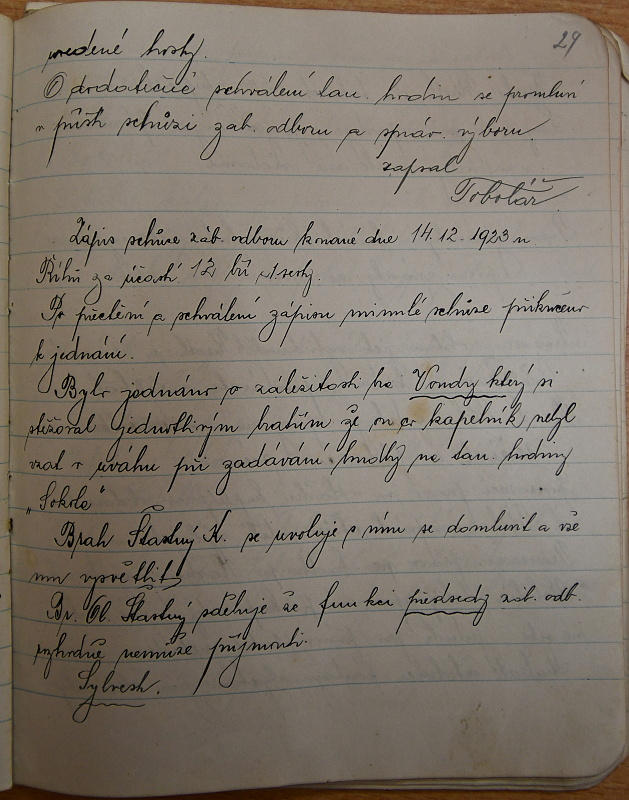 29
vedené hosty.
O dodatečné schválení tan. hodin se promluví
v příští schůzi zab. odboru a správ. výboru.
zapsal
Tobolář
Zápis schůze záb. odboru konané dne 14.12.1923 v
Říhů za účasti 12 brů a sester.
Po přečtení a schválení zápisu minulé schůze přikročeno
k jednání.
Bylo jednáno o záležitosti bra Vondry který si
stěžoval jednotlivým bratřím že on co kapelník nebyl
vzat v úváhu při zadávání hudby na tan. hodiny
„Sokola"
Bratr Šťastný K. se uvoluje s ním se domluvit a vše
mu vysvětlit.
Br. Ol. Šťastný sděluje že funkci předsedy záb. odb.
rozhodně nemůže přijmouti.
Sylvestr.